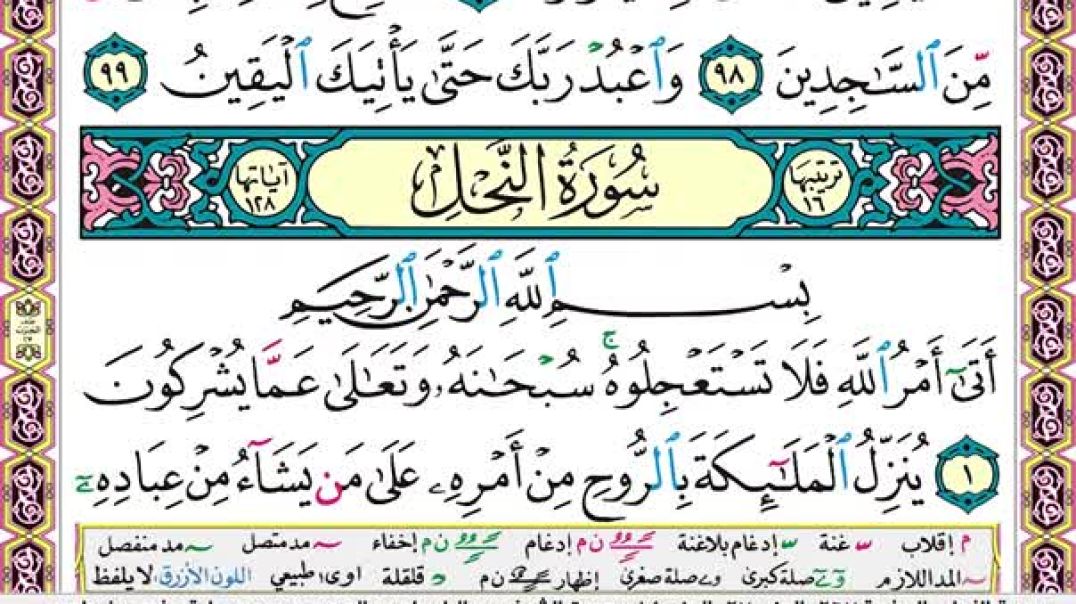 مِّنَ ٱلسَّـٰجِدِينَ ٩٨ وَٱعْبُدْ رَبَّكَ حَتَّىٰ يَأْتِيَكَ ٱلْيَقِينُ ٩٩
ترتيبها ١٦ سُورَةُ النَّحْلِ آياتها ١٢٨
بِسْمِ ٱللَّهِ ٱلرَّحْمَـٰنِ ٱلرَّحِيمِ
أَتَىٰٓ أَمْرُ ٱللَّهِ فَلَا تَسْتَعْجِلُوهُ ۚ سُبْحَـٰنَهُۥ وَتَعَـٰلَىٰ عَمَّا يُشْرِكُونَ
١ يُنَزِّلُ ٱلْمَلَـٰٓئِكَةَ بِٱلرُّوحِ مِنْ أَمْرِهِۦ عَلَىٰ مَن يَشَآءُ مِنْ عِبَادِهِۦٓ
م إقلاب غنة إدغام بلاغنة ن م إدغام ن م إخفاء مد متصل مد منفصل
المد اللازم صلة كبرى صلة صغرى إظهار ن م قلقلة اوى؛ طبيعي اللون الأزرق لا يلفظ